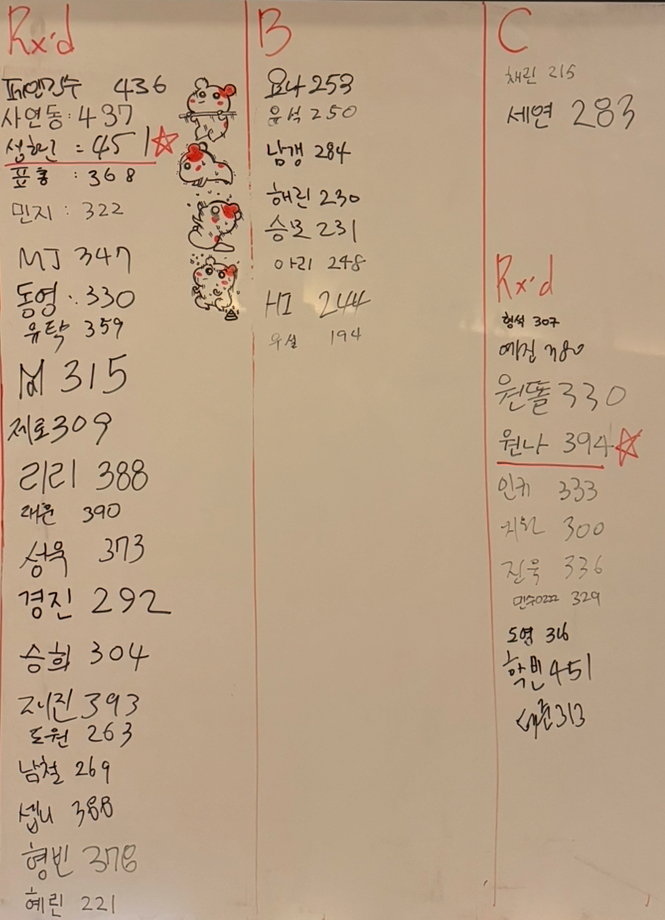 Rx'd
436
사연동: 437
성헌 : 451
표홍 : 368
민지 : 322
MJ 347
동영 : 330
유탁 359
M 315
제로 309
리리 388
태윤 390
성욱 373
경진 292
승희 304
재진 393
도원 263
남철 269
셉니 388
형빈 378
혜린 221
B
요나 253
윤석 250
남갱 284
해린 230
승모 231
아리 248
HI 244
194
C
채린 215
세연 283
Rx'd
형석 307
예진 380
원똘 330
원나 394
인키 333
지원 300
진욱 336
민수0222 329
도영 316
학빈 451
313